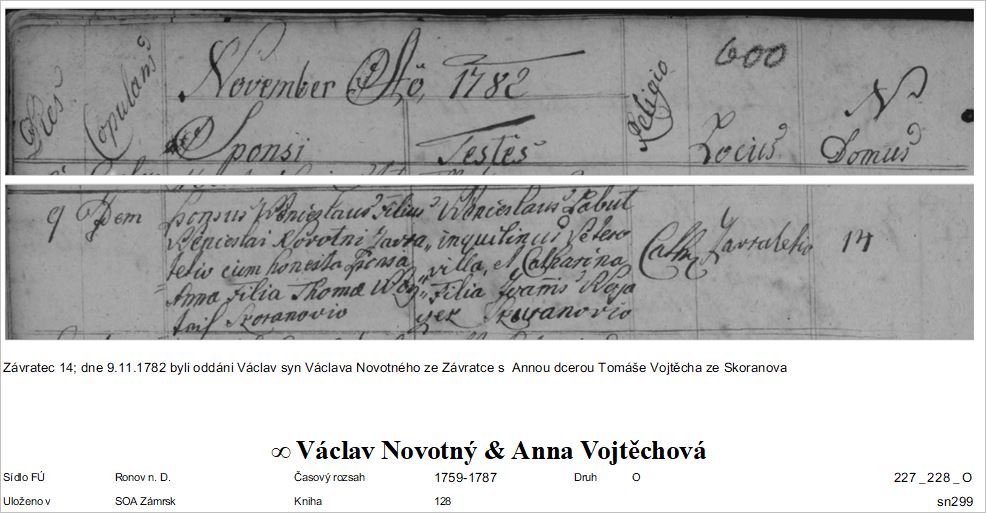 600
Dies Copulans November Ao 1782 Religio N
Sponsi Testes Locus Domus
9 Idem Sponsus Wenceslaus Filius Wenceslaus Labut
Wenceslai Novotni Zavra„ inquilinus Vetero
tetio cum honesta Sponsa villa, et Catharina Cath Zavratetio 14
Anna Filia Thomæ Filia
Skoranovio Skoranovio
Závratec 14; dne 9.11.1782 byli oddáni Václav syn Václava Novotného ze Závratce s Annou dcerou Tomáše Vojtěcha ze Skoranova
∞ Václav Novotný & Anna Vojtěchová
Sídlo FÚ Ronov n. D. Časový rozsah 1759-1787 Druh O 227_228_O
Uloženo v SOA Zámrsk Kniha 128 sn299